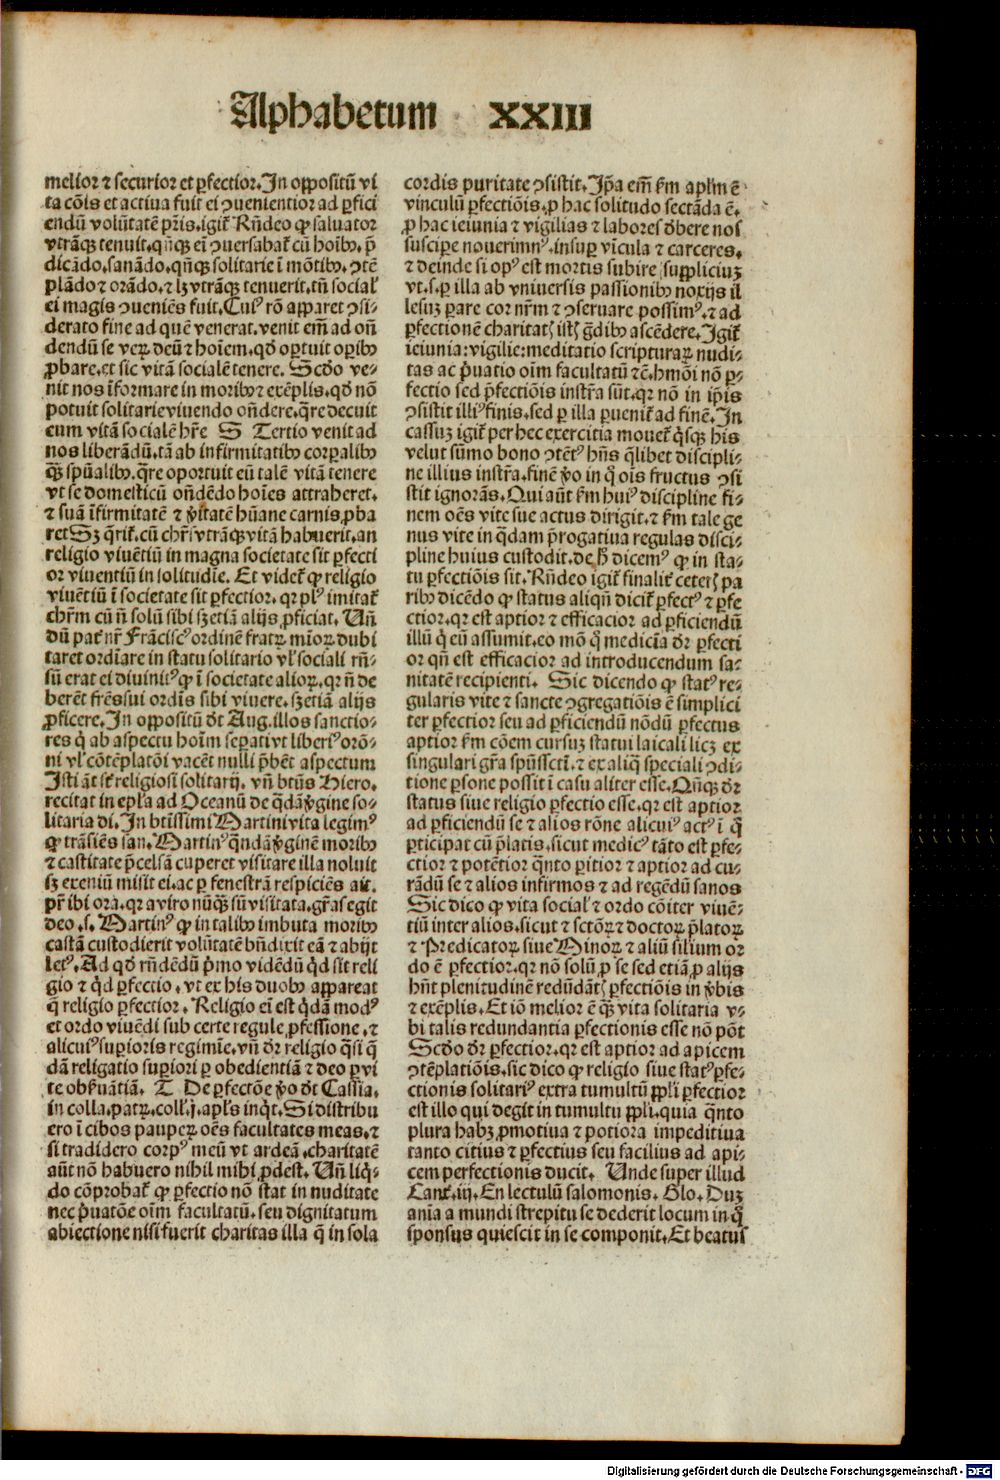 Alphabetum XXIII
melior ⁊ securior et ꝑfectior. In oppositũ vi
ta cõis et actiua fuit ei ꝯuenientior ad ꝑfici
endũ volũtatẽ pr̃is. igit᷑ Rñdeo ꝙ saluator
vtrãqꝫ tenuit. qñqꝫ eĩ ꝯuersabat᷑ cũ hoĩbꝰ. p̃
dicãdo. sanãdo. qñqꝫ solitarie ĩ mõtibꝰ. ꝯtẽ
plãdo ⁊ orãdo. ⁊ lꝫ vtrãqꝫ tenuerit. tñ social̕
ei magis ꝯueniẽs fuit. Cuiꝰ rõ apparet ꝯsi-
derato fine ad quẽ venerat. venit em̃ ad oñ
dendũ se veꝝ deũ ⁊ hoĩem. qđ oꝑtuit oꝑibꝰ
ꝓbare. et sic vitã socialẽ tenere. Scđo ve-
nit nos ĩformare in moribꝰ ⁊ exẽplis. qđ nõ
potuit solitarie viuendo oñdere. q̃re decuit
eum vitã socialẽ hr̃e S Tertio venit ad
nos liberãdũ. tã ab infirmitatibꝰ corꝑalibꝰ
qꝫ̃ spũalibꝰ. q̃re oportuit eũ talẽ vitã tenere
vt se domesticũ oñdẽdo hoĩes attraheret.
⁊ suã ĩfirmitatẽ ⁊ v̾itatẽ hũane carnis ꝓba
ret Sꝫ q̃rit᷑. cũ chr̃s vtrãqꝫ vitã habuerit. an
religio viuẽtiũ in magna societate sit ꝑfecti
or viuentiũ in solitudĩe. Et videt᷑ ꝙ religio
viuẽtiũ ĩ societate sit ꝑfectior. qꝛ plꝰ imitat᷑
chr̃m cũ ñ solũ sibi sꝫ etiã alijs ꝓficiat. Uñ
dũ pat᷑ nr̃ Frãciscꝰ ordinẽ fratꝝ mĩoꝝ dubi
taret ordĩare in statu solitario vl̕ sociali rñ-
sũ erat ei diuinitꝰ ꝙ ĩ societate alioꝝ. qꝛ ñ de
berẽt fr̃es sui ordĩs sibi viuere. sꝫ etiã alijs
ꝓficere. In oppositũ dt̃ Aug. illos sanctio-
res q̃ ab aspectu hoĩm seꝑati vt liberiꝰ orõ-
ni vl̕ cõtẽplatõi vacẽt nulli p̃bẽt aspectum
Isti ãt st̃ religiosi solitarij. vñ bt̃us Hiero.
recitat in epl̕a ad Oceanũ de q̃dã v̾gine so-
litaria di. In bt̃issimi Martini vita legimꝰ
ꝙ trãsiẽs san. Martinꝰ qñdã v̾ginẽ moribꝰ
⁊ castitate p̃celsã cuperet visitare illa noluit
sꝫ exeniũ misit ei. ac ꝑ fenestrã respiciẽs ait.
pr̃ ibi ora. qꝛ a viro nũqꝫ̃ sũ visitata. gr̃as egit
deo .s. Martinꝰ ꝙ in talibꝰ imbuta moribꝰ
castã custodierit volũtatẽ bñdixit eã ⁊ abijt
letꝰ. Ad qđ rñdẽdũ p̾mo vidẽdũ q̾d sit reli
gio ⁊ q̾d ꝑfectio. vt ex his duobꝰ appareat
q̃ religio ꝑfectior. Religio eĩ est q̾dã modꝰ
et ordo viuẽdi sub certe regule ꝓfessione. ⁊
alicuiꝰ suꝑioris regimĩe. vñ dr̃ religio q̃si q̃
dã religatio suꝑiori ꝑ obedientiã ⁊ deo ꝑ vi
te obẜuãtiã. T De ꝑfectõe v̾o dt̃ Cassia.
in colla. patꝝ. coll̕. j. apl̕s inq̾t. Si distribu
ero ĩ cibos pauꝑeꝝ oẽs facultates meas. ⁊
si tradidero corpꝰ meũ vt ardeã. charitatẽ
aũt nõ habuero nihil mihi ꝓdest. Uñ liq̾-
do cõprobat᷑ ꝙ ꝑfectio nõ stat in nuditate
nec p̾uatõe oĩm facultatũ. seu dignitatum
abiectione nisi fuerit charitas illa q̃ in sola
cordis puritate ꝯsistit. Ip̃a em̃ ẜm apl̕m ẽ
vinculũ ꝑfectiõis. ꝓ hac solitudo sectãda ẽ.
ꝓ hac ieiunia ⁊ vigilias ⁊ labores đbere nos
suscipe nouerimꝰ. insuꝑ vĩcula ⁊ carceres.
⁊ deinde si opꝰ est mortis subire suppliciuꝫ
vt .s. ꝑ illa ab vniuersis passionibꝰ noxijs il
lesuꝫ ꝑare cor nr̃m ⁊ ꝯseruare possimꝰ. ⁊ ad
ꝑfectionẽ charitatꝭ istꝭ g̃dibꝰ ascẽdere. Igit᷑
ieiunia: vigilie: meditatio scripturaꝝ nudi-
tas ac p̾uatio oĩm facultatũ ⁊c̃. hmõi nõ ꝑ-
fectio sed ꝑfectiõis instr̃a sũt. qꝛ nõ in ip̃is
ꝯsistit illiꝰ finis. sed ꝑ illa ꝑuenit᷑ ad finẽ. In
cassuꝫ igit᷑ per hec exercitia mouet᷑ q̾sqꝫ his
velut sũmo bono ꝯtẽtꝰ hñs q̃libet discipli-
ne illius instr̃a. finẽ v̾o in q̃ oĩs fructus ꝯsi
stit ignorãs. Qui aũt ẜm huiꝰ discipline fi-
nem oẽs vite sue actus dirigit. ⁊ ẜm tale ge
nus vite in q̃dam p̃rogatiua regulas disci-
pline huius custodit. de h̃ dicemꝰ ꝙ in sta-
tu ꝑfectiõis sit. Rñdeo igit᷑ finalit᷑ ceterꝭ pa
ribꝰ dicẽdo ꝙ status aliqñ dicit᷑ ꝑfectꝰ ⁊ ꝑfe
ctior. qꝛ est aptior ⁊ efficacior ad ꝑficiendũ
illũ q̾ eũ assumit. eo mõ q̃ medicĩa dr̃ ꝑfecti
or qñ est efficacior ad introducendum sa-
nitatẽ recipienti. Sic dicendo ꝙ statꝰ re-
gularis vite ⁊ sancte ꝯgregatiõis ẽ simplici
ter ꝑfectior seu ad ꝑficiendũ nõdũ ꝑfectus
aptior ẜm cõem cursuꝫ statui laicali licꝫ ex
singulari gr̃a spũssctĩ. ⁊ ex aliq̃ speciali ꝯdi-
tione ꝑsone possit ĩ casu aliter esse. Qñqꝫ dr̃
status siue religio ꝑfectio esse. qꝛ est aptior
ad ꝑficiendũ se ⁊ alios rõne alicuiꝰ actꝰ ĩ q̃
ꝑticipat cũ p̃latis. sicut medicꝰ tãto est ꝑfe-
ctior ⁊ potẽtior q̃nto ꝑitior ⁊ aptior ad cu-
rãdũ se ⁊ alios infirmos ⁊ ad regẽdũ sanos
Sic dico ꝙ vita social̕ ⁊ ordo cõiter viuẽ-
tiũ inter alios. sicut ⁊ sctõꝝ ⁊ doctoꝝ p̃latoꝝ
⁊ Predicatoꝝ siue Minoꝝ ⁊ aliũ silium or
do ẽ ꝑfectior. qꝛ nõ solũ ꝓ se sed etiã ꝓ alijs
hñt plenitudinẽ redũdãtꝭ ꝑfectiõis in v̾bis
⁊ exẽplis. Et iõ melior ẽ qꝫ̃ vita solitaria v-
bi talis redundantia ꝑfectionis esse nõ põt
Scđo dr̃ ꝑfectior. qꝛ est aptior ad apicem
ꝯtẽplatiõis. sic dico ꝙ religio siue statꝰ ꝑfe-
ctionis solitariꝰ extra tumultũ ppl̕i ꝑfectior
est illo qui degit in tumultu ppl̕i. quia q̃nto
plura habꝫ ꝓmotiua ⁊ potiora impeditiua
tanto citius ⁊ ꝑfectius seu facilius ad api-
cem perfectionis ducit. Unde super illud
Cant᷑. iij. En lectulũ salomonis. Glo. Duꝫ
anĩa a mundi strepitu se dederit locum in q̃
sponsus quiescit in se componit. Et beatus
Digitalisierung gefördert durch die Deutsche Forschungsgemeinschaft - DFG